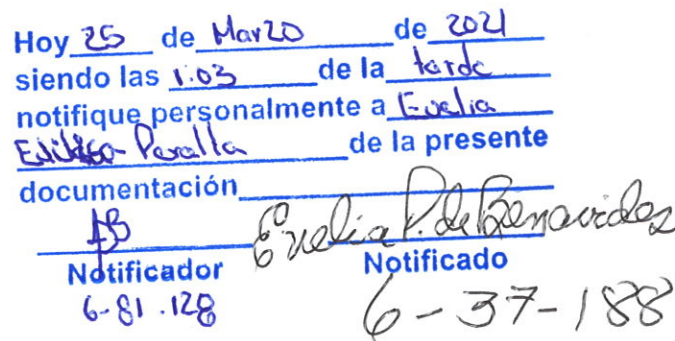 Hoy 25 de Marzo de 2021
siendo las 1:03 de la tarde
notifique personalmente a Evelia
Peralta de la presente
documentación
AB Evelia P. de Benavides
Notificador Notificado
6-81.128 6-37-188